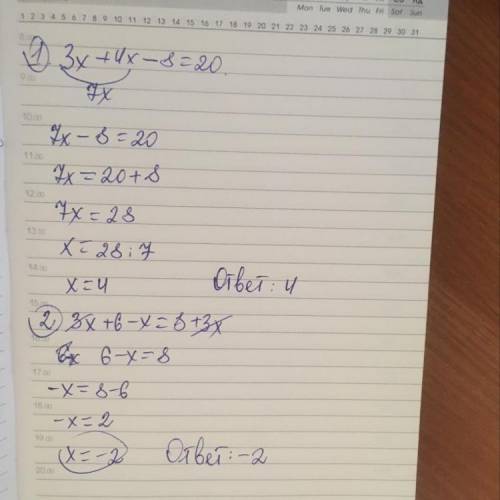 Mon Tue Wed Thu Fri Sat Sun
1 2 3 4 5 6 7 8 9 10 11 12 13 14 15 16 17 18 19 20 21 22 23 24 25 26 27 28 29 30 31
1) 3x + 4x - 8 = 20.
9.00
7x
10.00
7x - 8 = 20
11.00
7x = 20 + 8
12.00
7x = 28
13.00
x = 28 : 7
14.00
x = 4 Ответ: 4
15.00
2) 3x + 6 - x = 8 + 3x
6 - x = 8
17.00
-x = 8 - 6
18.00
-x = 2
19.00
x = -2 Ответ: -2
20.00